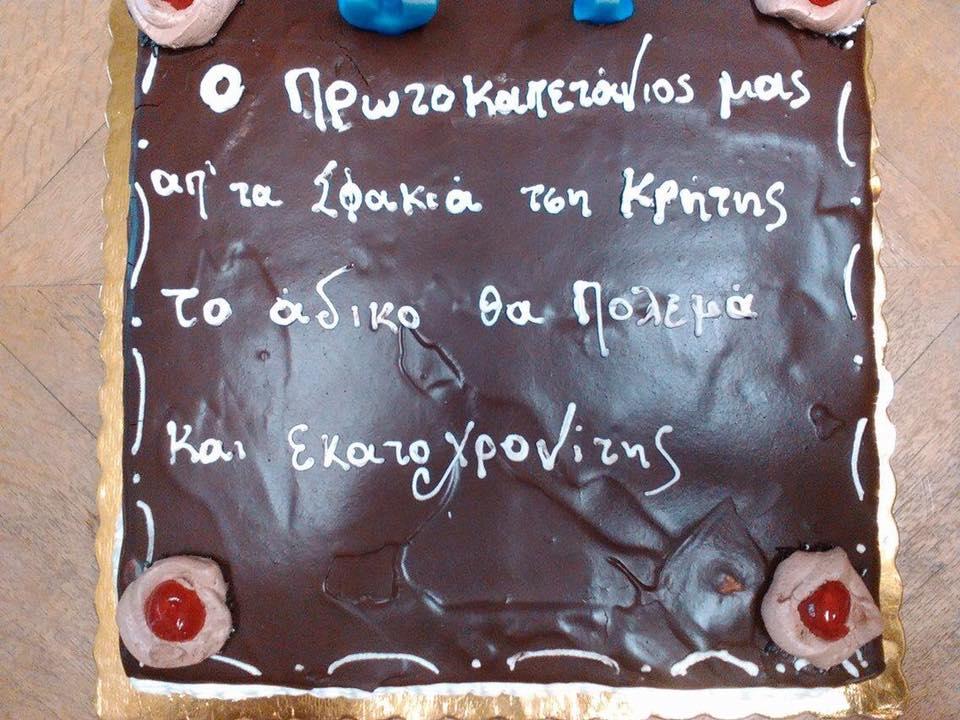 Ο Πρωτοκαπετάνιος μας
απ' τα Σφακιά τση Κρήτης
το άδικο θα Πολεμά
Και Εκατοχρονίτης